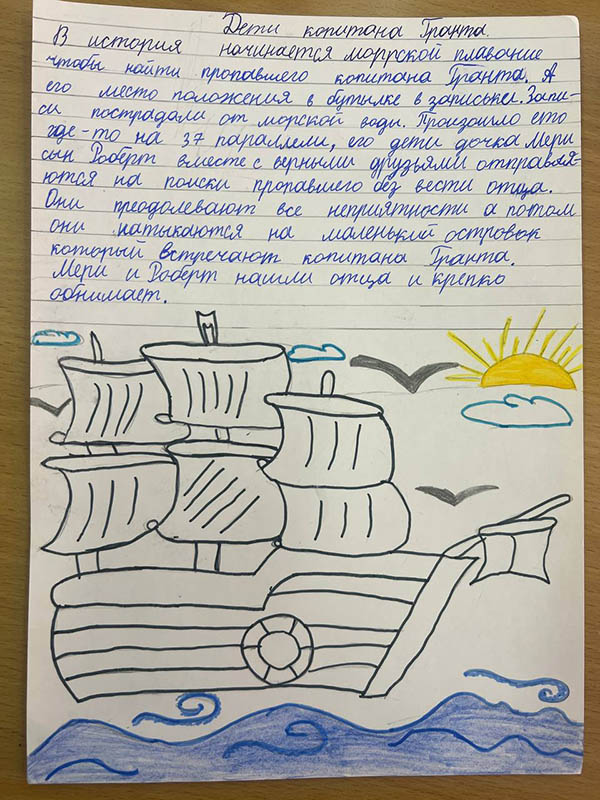 Дети копитана Гранта.
В история начинается моррской плавание
чтобы найти пропавшего копитана Гранта. А
его место положения в бутылке в запиське. Запи-
си пострадали от морской воды. Произошло ето
где-то на 37 параллели, его дети дочка Мери
сын Роберт вместе с верными друзьями отправля-
ются на поиски пропавшего без вести отца.
Они преодолевают все неприятности а потом
они натыкаются на маленький островок
который встречают копитана Гранта.
Мери и Роберт нашли отца и крепко
обнимает.